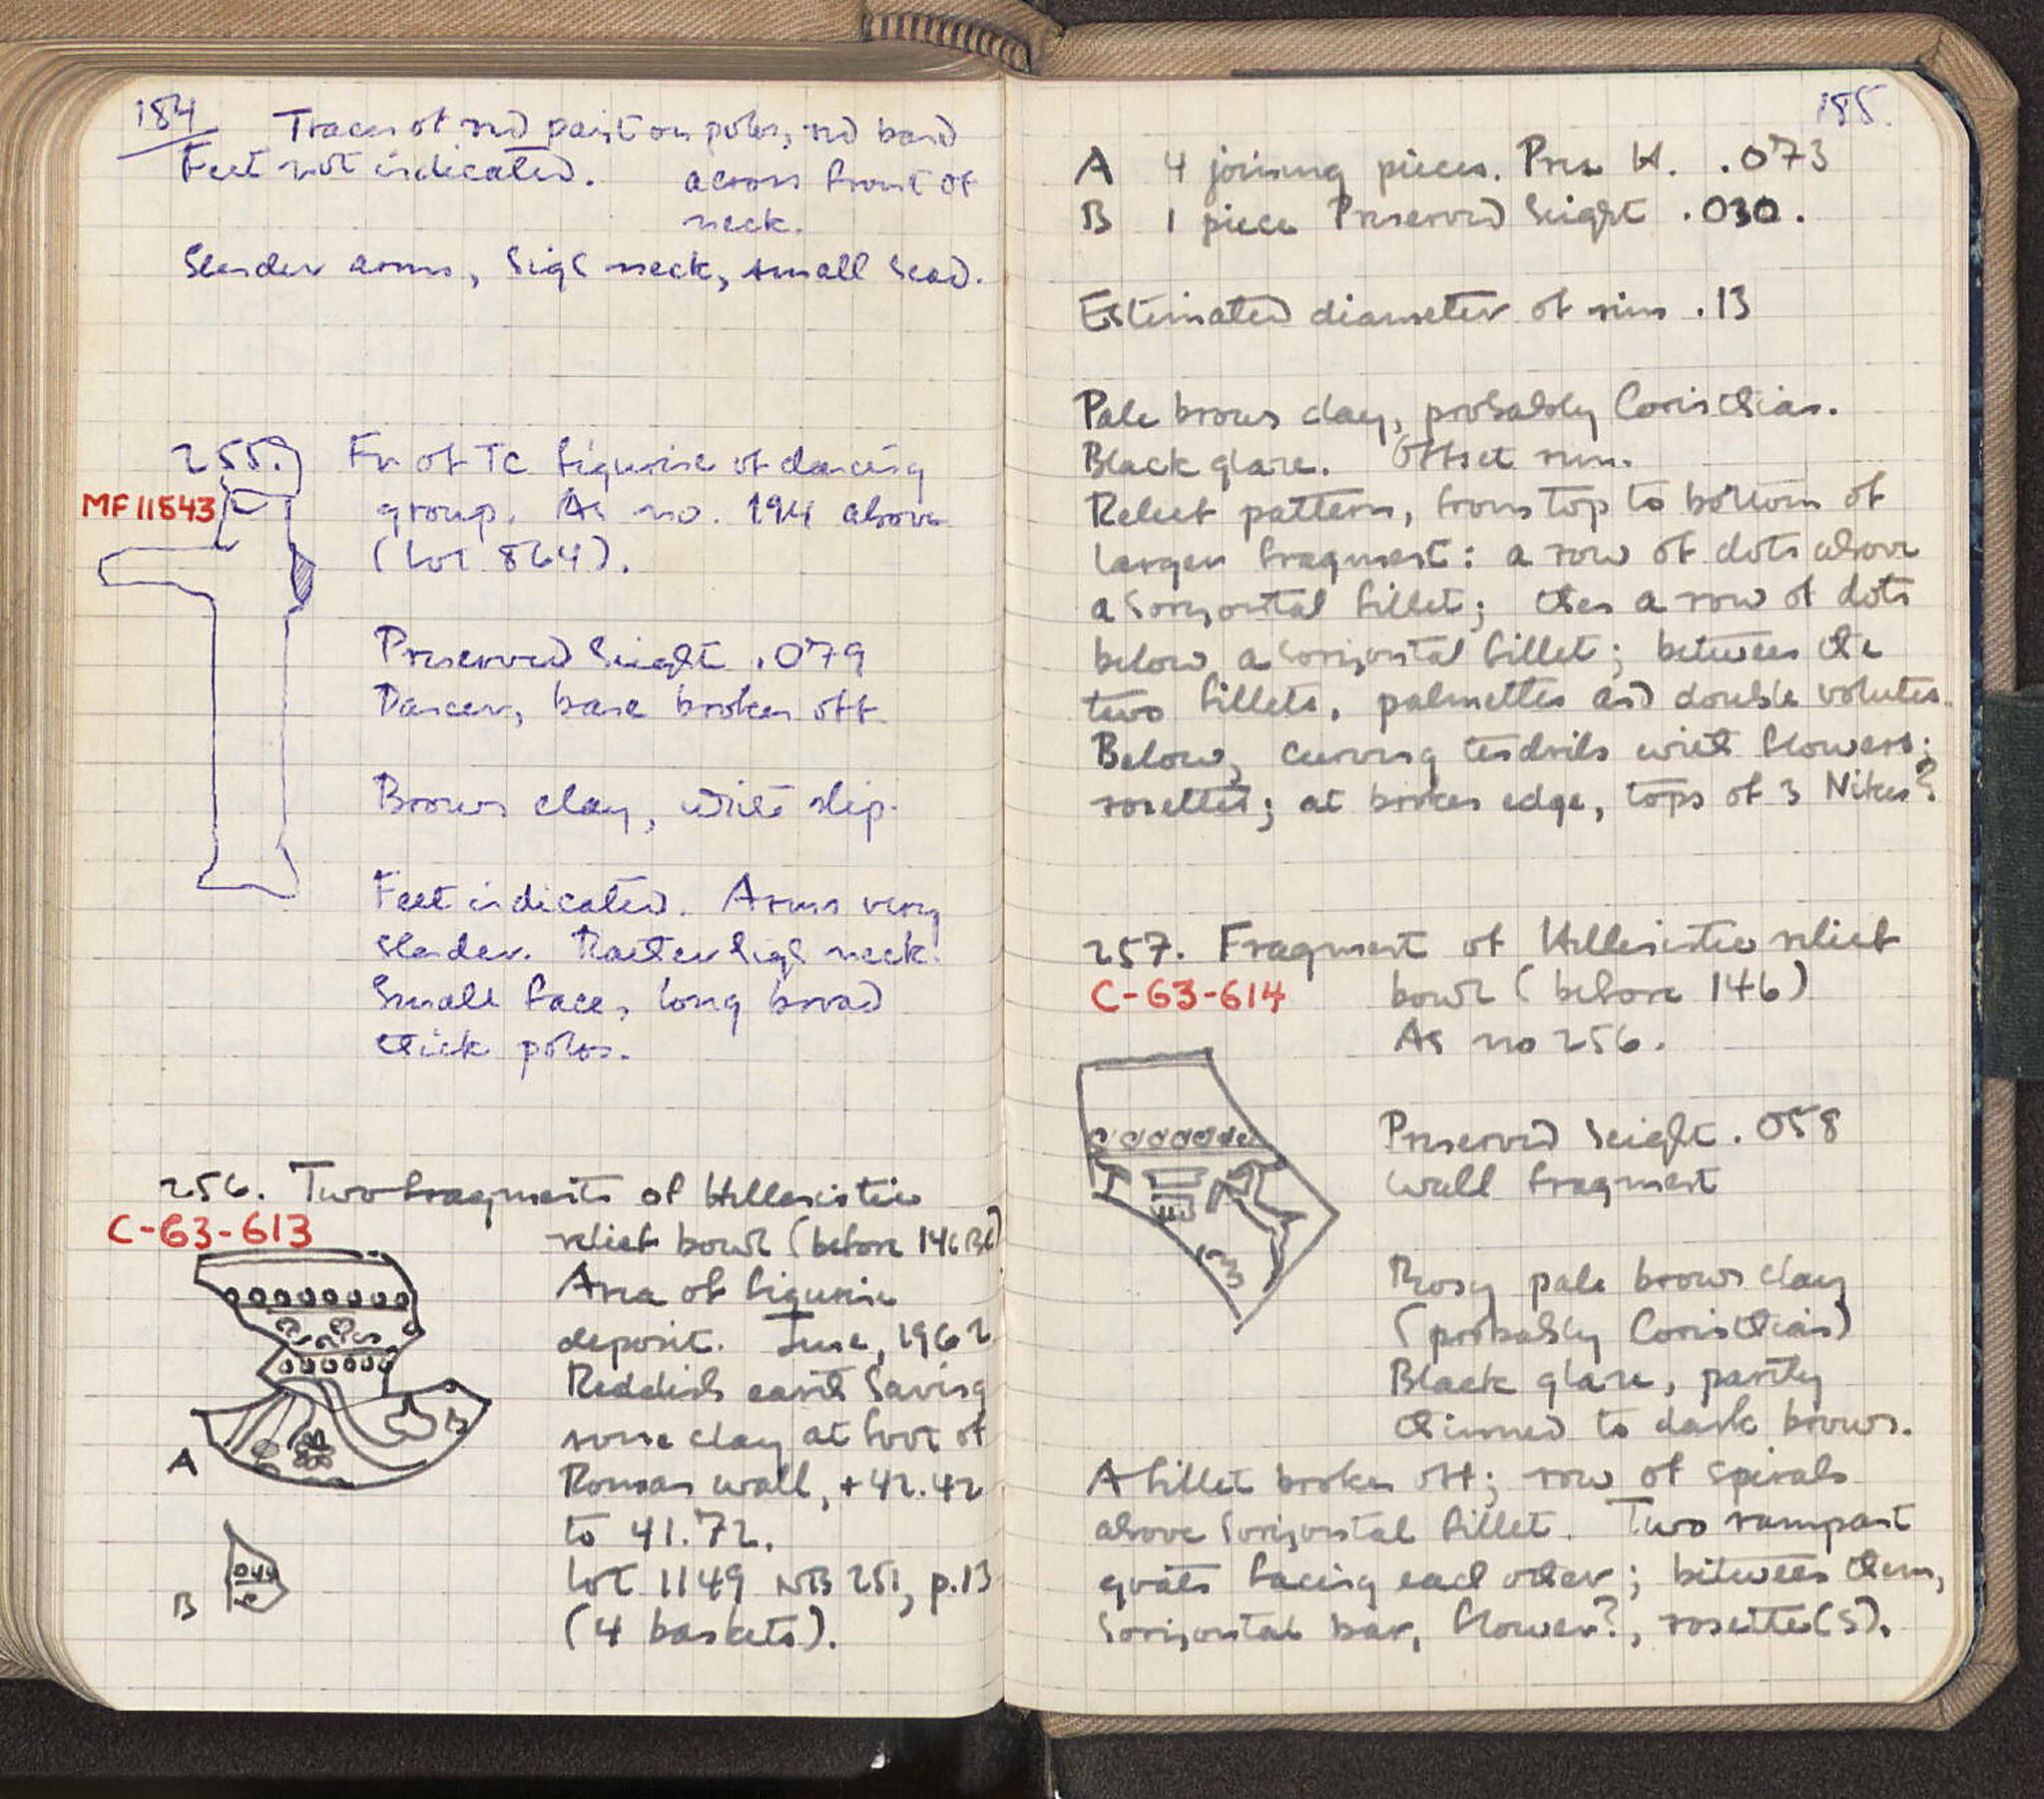 184
Traces of red paint on polos, red band
Feet not indicated. across front of
neck.
Slender arms, high neck, small head.
255. Fr of TC figurine of dancing
MF 11543 group. As no. 194 above
(lot 864).
Preserved height .079
Dancer, base broken off
Brown clay, white slip.
Feet indicated. Arms very
slender. Rather high neck.
Small face, long broad
thick polos.
256. Two fragments of Hellenistic
C-63-613 relief bowl (before 146 BC)
Area of figurine
deposit. June, 1962
Reddish earth having
some clay at foot of
Roman wall, +42.42
to 41.72.
Lot 1149 NB 251, p.13
(4 baskets).
A
B
B
185.
A 4 joining pieces. Pres H. .073
B 1 piece Preserved height .030.
Estimated diameter of rim .13
Pale brown clay, probably Corinthian.
Black glaze. Offset rim.
Relief pattern, from top to bottom of
larger fragment: a row of dots above
a horizontal fillet; then a row of dots
below a horizontal fillet; between the
two fillets, palmettes and double volutes.
Below, curving tendrils with flowers;
rosettes; at broken edge, tops of 3 Nikes?
257. Fragment of Hellenistic relief
C-63-614 bowl (before 146)
As no 256.
Preserved height .058
Wall fragment
Rosy pale brown clay
(probably Corinthian)
Black glaze, partly
thinned to dark brown.
A fillet broken off; row of spirals
above horizontal fillet. Two rampant
goats facing each other; between them,
horizontal bar, flower?, rosette(s).